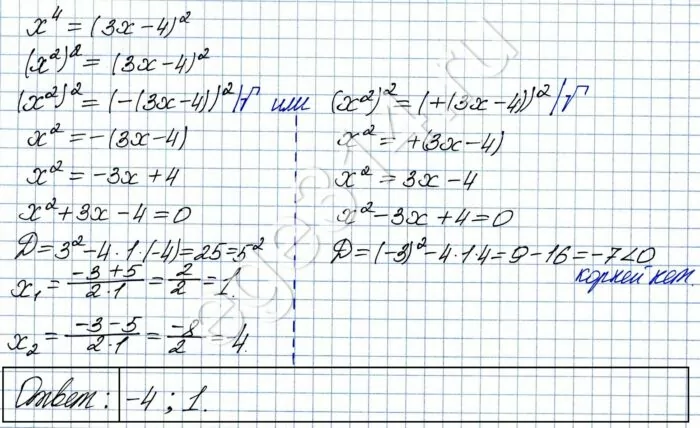 x⁴ = (3x-4)²
(x²)² = (3x-4)²
(x²)² = (-(3x-4))² |√ или (x²)² = (+(3x-4))² |√
x² = -(3x-4)
x² = -3x+4
x²+3x-4=0
D=3²-4·1·(-4)=25=5²
x₁ = (-3+5)/(2·1) = 2/2 = 1.
x₂ = (-3-5)/(2·1) = -8/2 = 4.
x² = +(3x-4)
x² = 3x-4
x²-3x+4=0
D=(-3)²-4·1·4=9-16=-7<0
корней нет.
Ответ: -4; 1.
ege314.ru